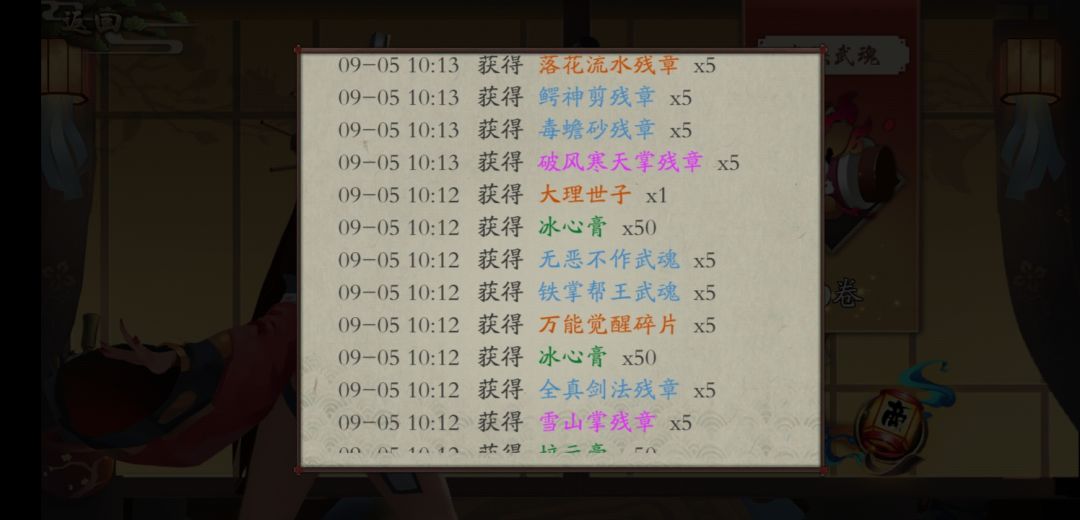 返回
武魂
09-05 10:13 获得 落花流水残章 x5
09-05 10:13 获得 鳄神剪残章 x5
09-05 10:13 获得 毒蟾砂残章 x5
09-05 10:13 获得 破风寒天掌残章 x5
09-05 10:12 获得 大理世子 x1
09-05 10:12 获得 冰心膏 x50
09-05 10:12 获得 无恶不作武魂 x5
09-05 10:12 获得 铁掌帮王武魂 x5
09-05 10:12 获得 万能觉醒碎片 x5
09-05 10:12 获得 冰心膏 x50
09-05 10:12 获得 全真剑法残章 x5
09-05 10:12 获得 雪山掌残章 x5
09-05 10:12 获得 培元膏 x50
卷
帝